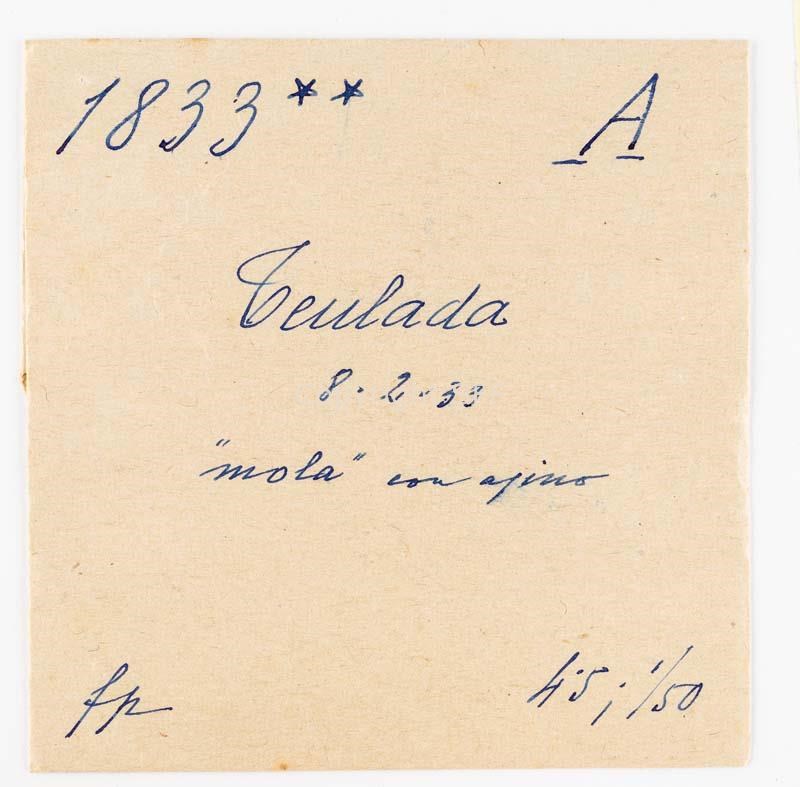 1833** A
Teulada
8.2.33
"mola" con asino
fp
4·5; 1/50